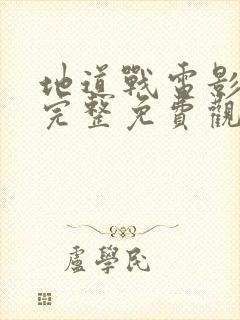 地道戰電影
完整免費觀
盧學民